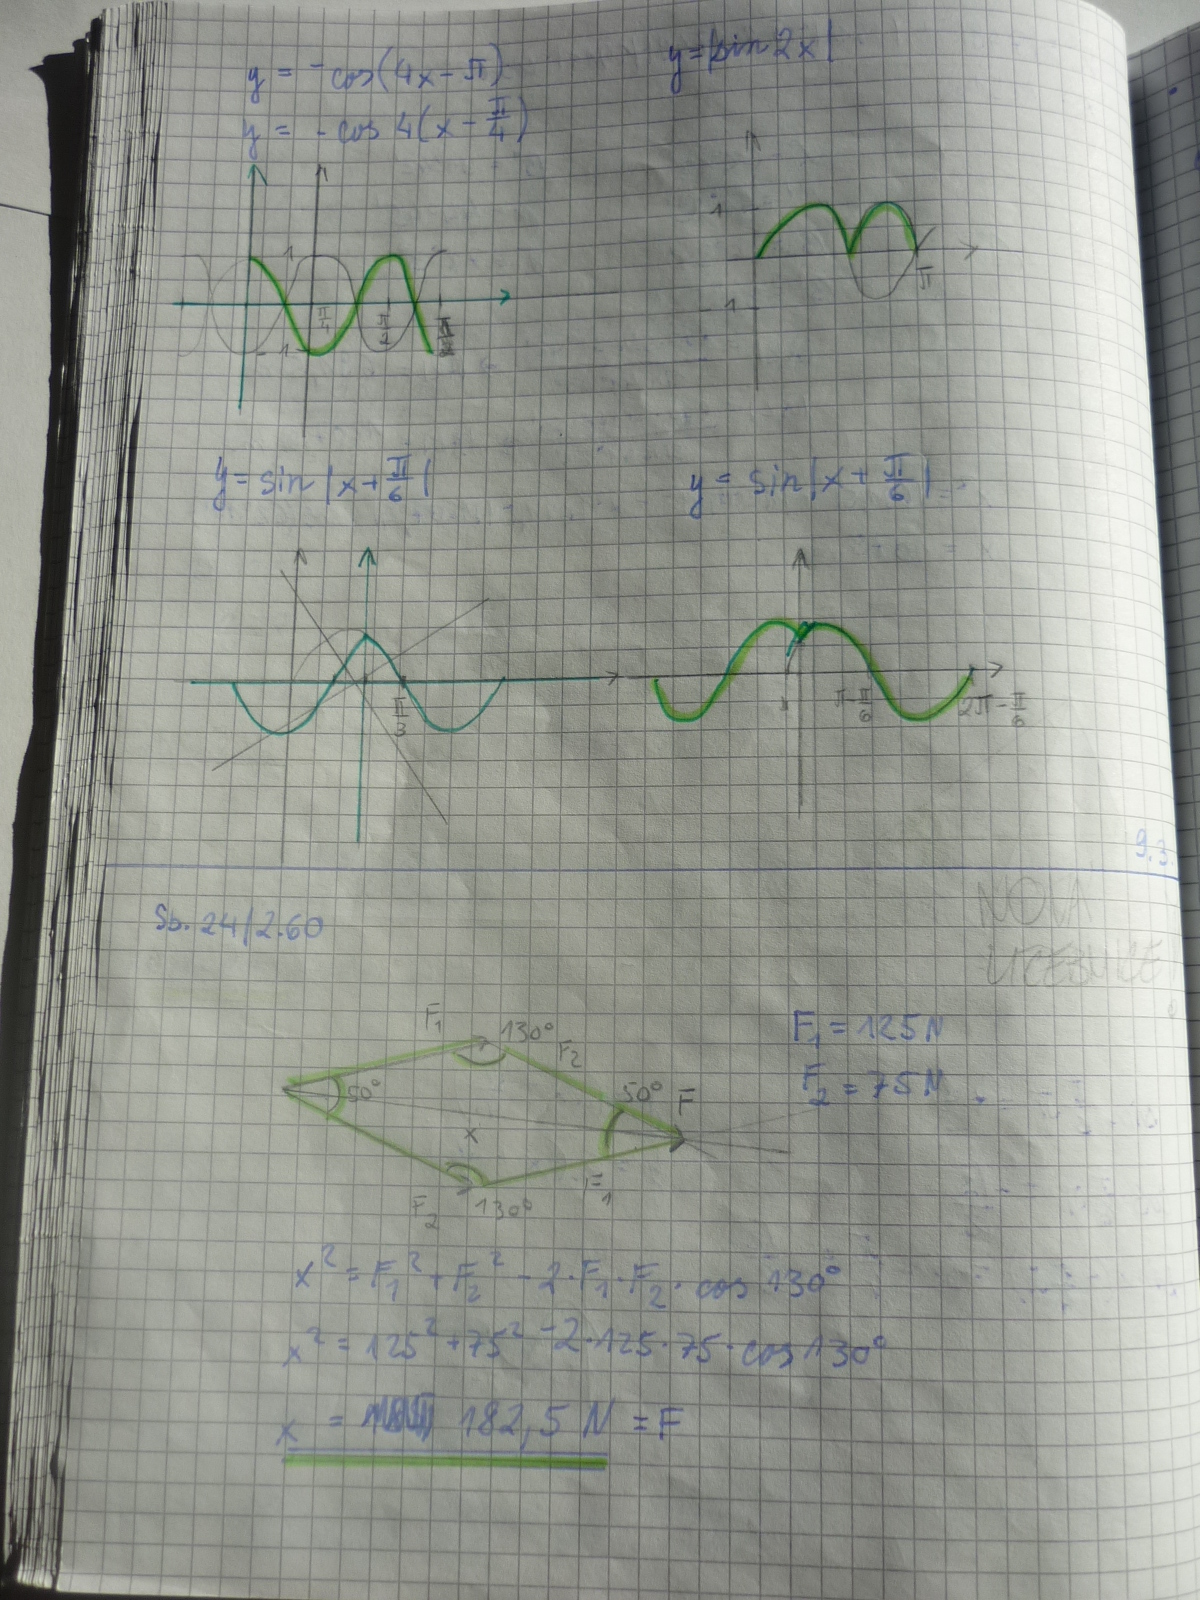 y = -cos(4x - π)
y = |sin 2x|
y = -cos 4(x - π/4)
1
-1
π/4
π/2
1
-1
π
y = sin |x + π/6|
y = sin |x + π/6|
π/3
π - π/6
2π - π/6
9.3.
Sb. 24/2.60
F₁
130°
F₂
50°
50°
F
x
F₂
130°
F₁
F₁ = 125 N
F₂ = 75 N
x² = F₁² + F₂² - 2·F₁·F₂·cos 130°
x² = 125² + 75² - 2·125·75·cos 130°
x = 182,5 N = F